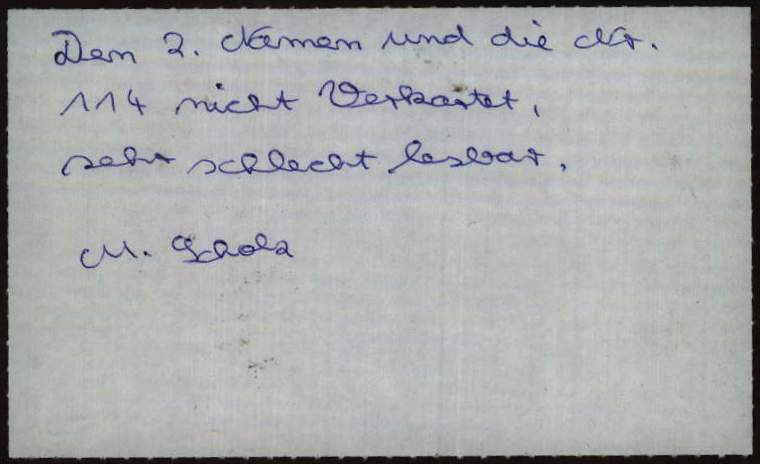 Den 2. Namen und die Nr.
114 nicht Verkartet,
sehr schlecht lesbar.
M. Scholz